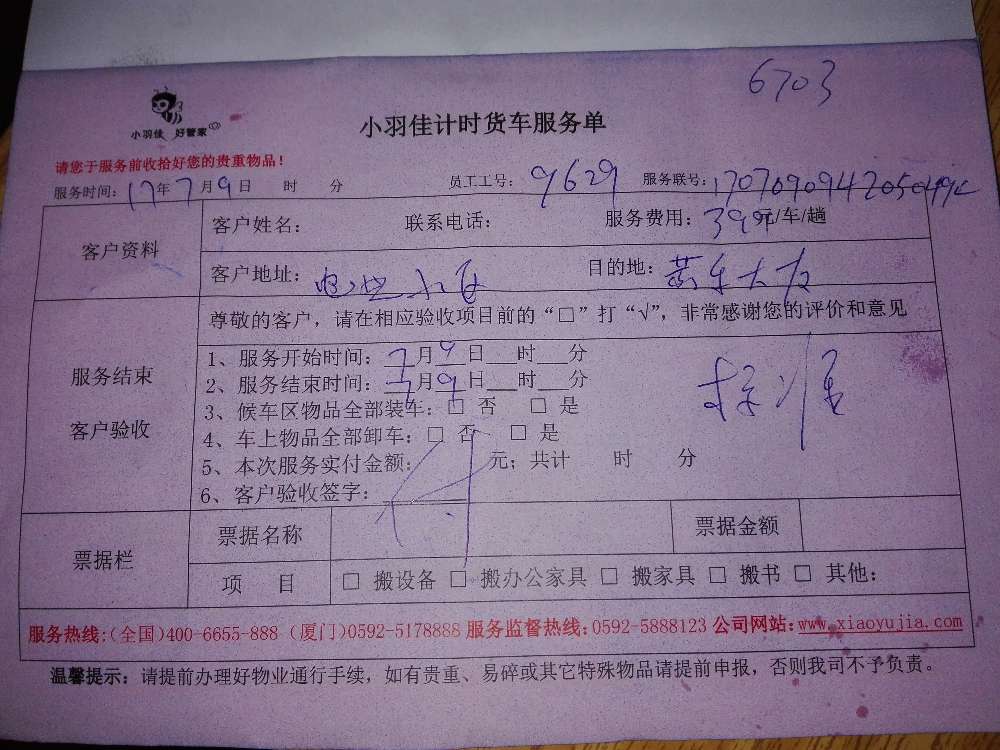 6703
小羽佳 好管家
小羽佳计时货车服务单
请您于服务前收拾好您的贵重物品！
服务时间：17年7月9日 时 分 员工工号：9629 服务联号：
客户资料
客户姓名： 联系电话： 服务费用：399元/车/趟
客户地址： 目的地：
尊敬的客户，请在相应验收项目前的“□”打“√”，非常感谢您的评价和意见
服务结束
客户验收
1、服务开始时间：7月9日 时 分
2、服务结束时间：7月9日 时 分
3、候车区物品全部装车：□ 否 □ 是
4、车上物品全部卸车：□ 否 □ 是
5、本次服务实付金额： 元；共计 时 分
6、客户验收签字：
票据栏
票据名称 票据金额
项 目 □ 搬设备 □ 搬办公家具 □ 搬家具 □ 搬书 □ 其他：
服务热线:(全国)400-6655-888 (厦门)0592-5178888 服务监督热线:0592-5888123 公司网站:www.xiaoyujia.com
温馨提示：请提前办理好物业通行手续，如有贵重、易碎或其它特殊物品请提前申报，否则我司不予负责。